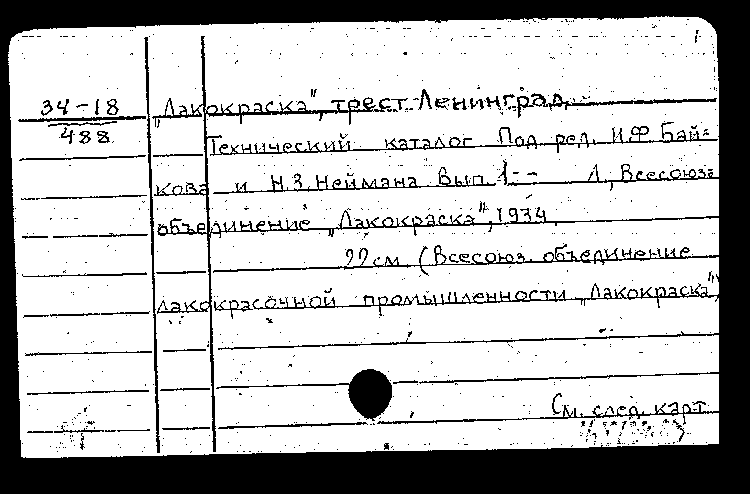 34-18
488
"Лакокраска", трест. Ленинград.
Технический каталог Под ред. И.Ф. Бай=
кова и Н.З. Неймана Вып. 1-- Л., Всесоюз.
объединение „Лакокраска", 1934.
22 см. (Всесоюз. объединение
лакокрасочной промышленности „Лакокраска",
См. след. карт.